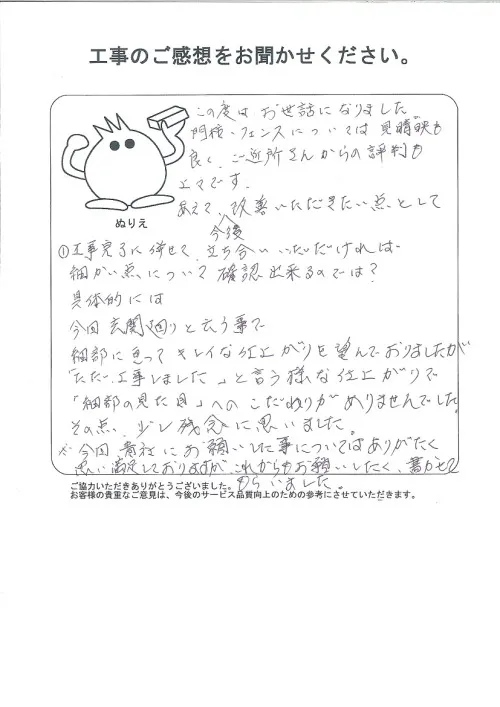 工事のご感想をお聞かせください。
この度は お世話になりました。
門塀・フェンスについては 見晴映も
良く、ご近所さんからの評判も
エマです。
あえて、改善いただきたい点として
今後
ぬりえ
①工事完了に併せて、立ち合いいただければ
細かい点について 確認出来るのでは?
具体的には
今回 玄関廻りと云う事で
細部に至って キレイな仕上がりを望んでおりましたが
「ただ工事しました」と言う様な仕上がりで
「細部の見た目」への こだわりがありませんでした。
その点、少し残念に思いました。
※今回 貴社にお願いした事についてはありがたく
思い満足しておりますが、これからもお願いしたく、書かせて
もらいました。
ご協力いただきありがとうございました。
お客様の貴重なご意見は、今後のサービス品質向上のための参考にさせていただきます。